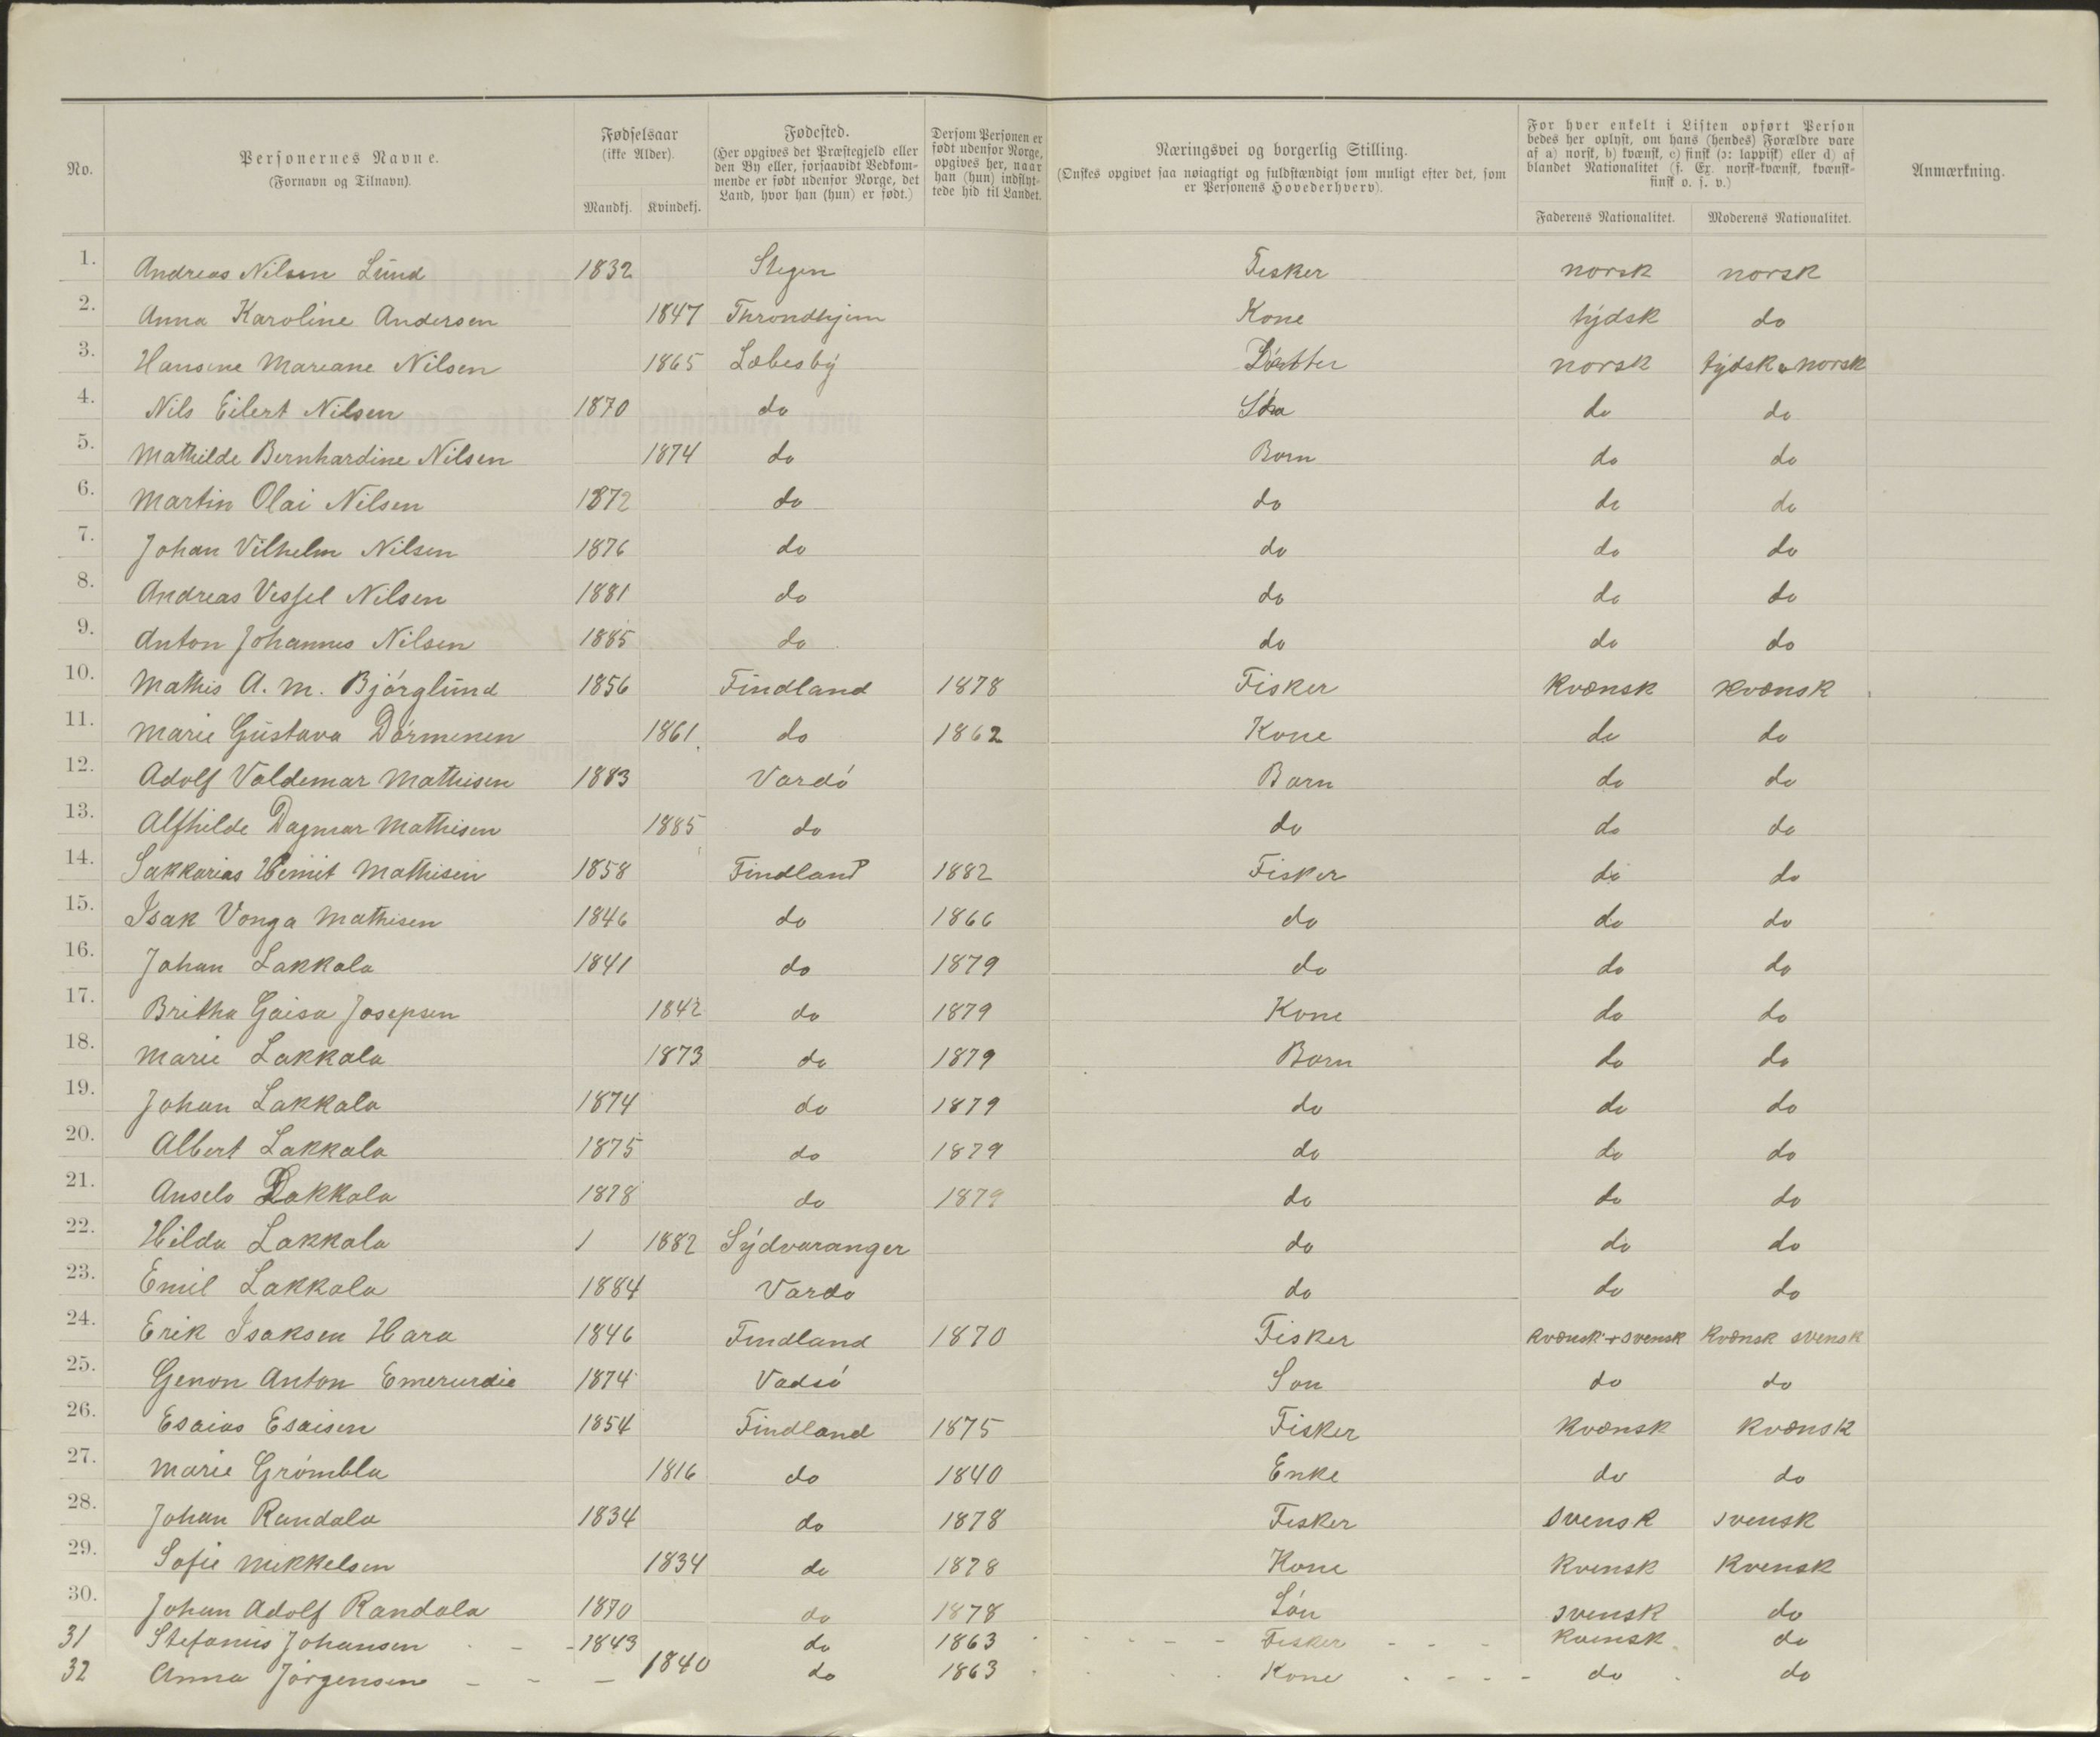 No.
Personernes Navne.
(Fornavn og Tilnavn).
Fødselsaar
(ikke Alder).
Mandkj. Kvindekj.
Fødested.
(Her opgives det Præstegjeld eller
den By eller, forsaavidt Vedkom-
mende er født udenfor Norge, det
Land, hvor han (hun) er født.)
Dersom Personen er
født udenfor Norge,
opgives her, naar
han (hun) indflyt-
tede hid til Landet.
Næringsvei og borgerlig Stilling.
(Ønskes opgivet saa nøiagtigt og fuldstændigt som muligt efter det, som
er Personens Hovederhverv).
For hver enkelt i Listen opført Person
bedes her oplyst, om hans (hendes) Forældre vare
af a) norsk, b) kvænsk, c) finsk (ɔ: lappisk) eller d) af
blandet Nationalitet (f. Ex. norsk-kvænsk, kvænsk-
finsk o. s. v.)
Faderens Nationalitet. Moderens Nationalitet.
Anmærkning.
1. Andreas Nilsen Lund 1832 Stegen Fisker norsk norsk
2. Anna Karoline Andersen 1847 Throndhjem Kone tydsk do
3. Hansine Mareane Nilsen 1865 Læbesby Datter norsk tydsk norsk
4. Nils Eilert Nilsen 1870 do do do
5. Mathilde Bernhardine Nilsen 1874 do Barn do do
6. Martin Olai Nilsen 1872 do do do do
7. Johan Vilhelm Nilsen 1876 do do do do
8. Andreas Vessel Nilsen 1881 do do do do
9. Anton Johannes Nilsen 1885 do do do do
10. Mathis A. M. Bjórglund 1856 Findland 1878 Fisker Kvænsk Kvænsk
11. Marie Gustava Dórmenen 1861 do 1862 Kone do do
12. Adolf Valdemar Mathisen 1883 Vardó Barn do do
13. Alfhilde Dagmar Mathisen 1885 do do do do
14. Sakkarias Mathisen 1858 Findland 1882 Fisker do do
15. Isak Vonga Mathisen 1846 do 1866 do do do
16. Johan Lakkala 1841 do 1879 do do do
17. Britha Gaisa Josepsen 1842 do 1879 Kone do do
18. Marie Lakkala 1873 do 1879 Barn do do
19. Johan Lakkala 1874 do 1879 do do do
20. Albert Lakkala 1875 do 1879 do do do
21. Ansela Lakkala 1878 do 1879 do do do
22. Hilda Lakkala 1 1882 Sydvaranger do do do
23. Emil Lakkala 1884 Vardo do do do
24. Erik Isaksen Hara 1846 Findland 1870 Fisker Kvænsk + svensk Kvænsk svensk
25. Genon Anton 1874 Vadsó Son do do
26. Esaias Esaisen 1854 Findland 1875 Fisker Kvænsk Kvænsk
27. Marie Grómbla 1816 do 1840 Enke do do
28. Johan Randala 1834 do 1878 Fisker svensk svensk
29. Sofie Mikkelsen 1834 do 1878 Kone Kvensk Kvensk
30. Johan Adolf Randala 1870 do 1878 Són svensk do
31 Stefanus Johansen - - - 1843 do 1863 - - - Fisker - - - Kvensk do
32 Anna Jórgensen - - - 1840 do 1863 Kone - - - do do